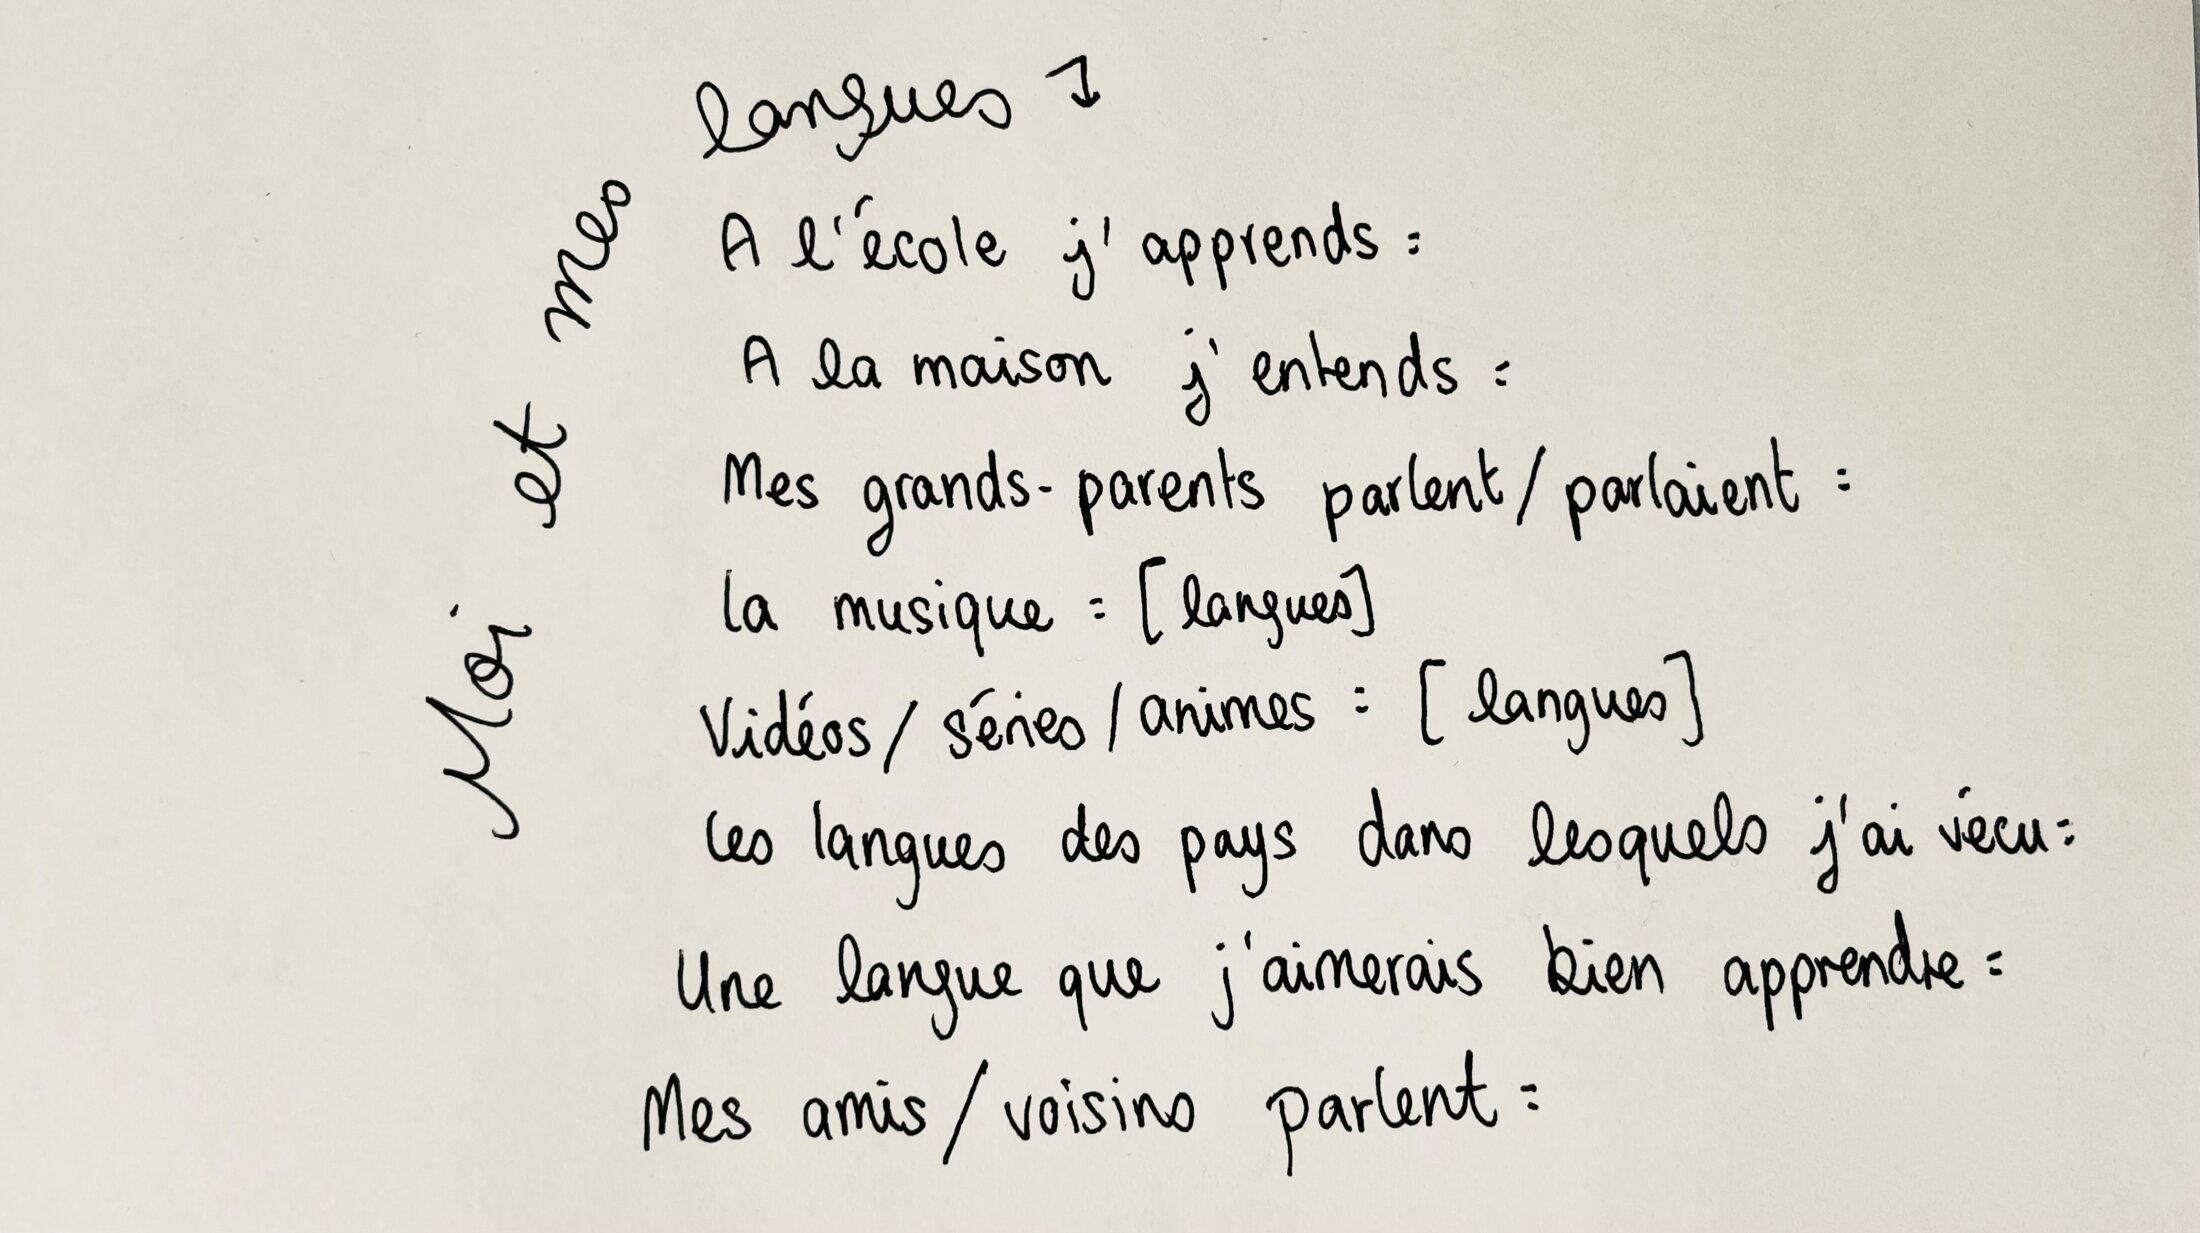 Moi et mes langues ↴
A l'école j'apprends :
A la maison j'entends :
Mes grands-parents parlent/parlaient :
La musique : [langues]
Vidéos/séries/animes : [langues]
Les langues des pays dans lesquels j'ai vécu :
Une langue que j'aimerais bien apprendre :
Mes amis/voisins parlent :